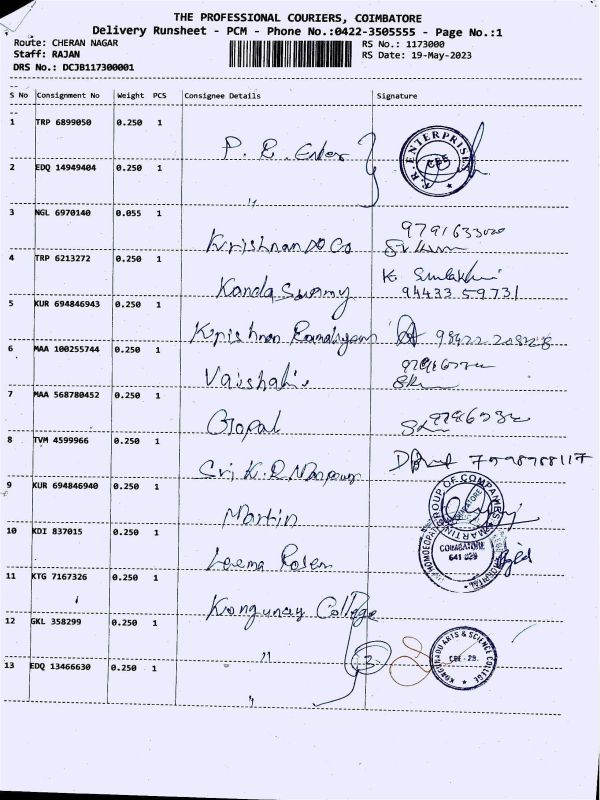 THE PROFESSIONAL COURIERS, COIMBATORE
Delivery Runsheet - PCM - Phone No.:0422-3505555 - Page No.:1
Route: CHERAN NAGAR RS No.: 1173000
Staff: RAJAN RS Date: 19-May-2023
DRS No.: DCJB117300001
S No Consignment No Weight PCS Consignee Details Signature
1 TRP 6899050 0.250 1
P. R. Enter
ENTERPRISE
CBE
2 EDQ 14949404 0.250 1
"
3 NGL 6970140 0.055 1
Krishnan & Co 9791633020
4 TRP 6213272 0.250 1
Kanda Swamy K.
94433 59731
5 KUR 694846943 0.250 1
Krishnan
6 MAA 100255744 0.250 1
7 MAA 568780452 0.250 1
Gopal
8 TVM 4599966 0.250 1
Sri K. R
9 KUR 694846940 0.250 1
Martin
GROUP OF COMPANIES
COIMBATORE
MARTIN
10 KDI 837015 0.250 1
Leema Rosen
HOMOEOPATHY
COIMBATORE
641 029
HOSPITAL
11 KTG 7167326 0.250 1
College
12 GKL 358299 0.250 1
"
3
KONGUNADU ARTS & SCIENCE COLLEGE
CBE - 29.
13 EDQ 13466630 0.250 1
"